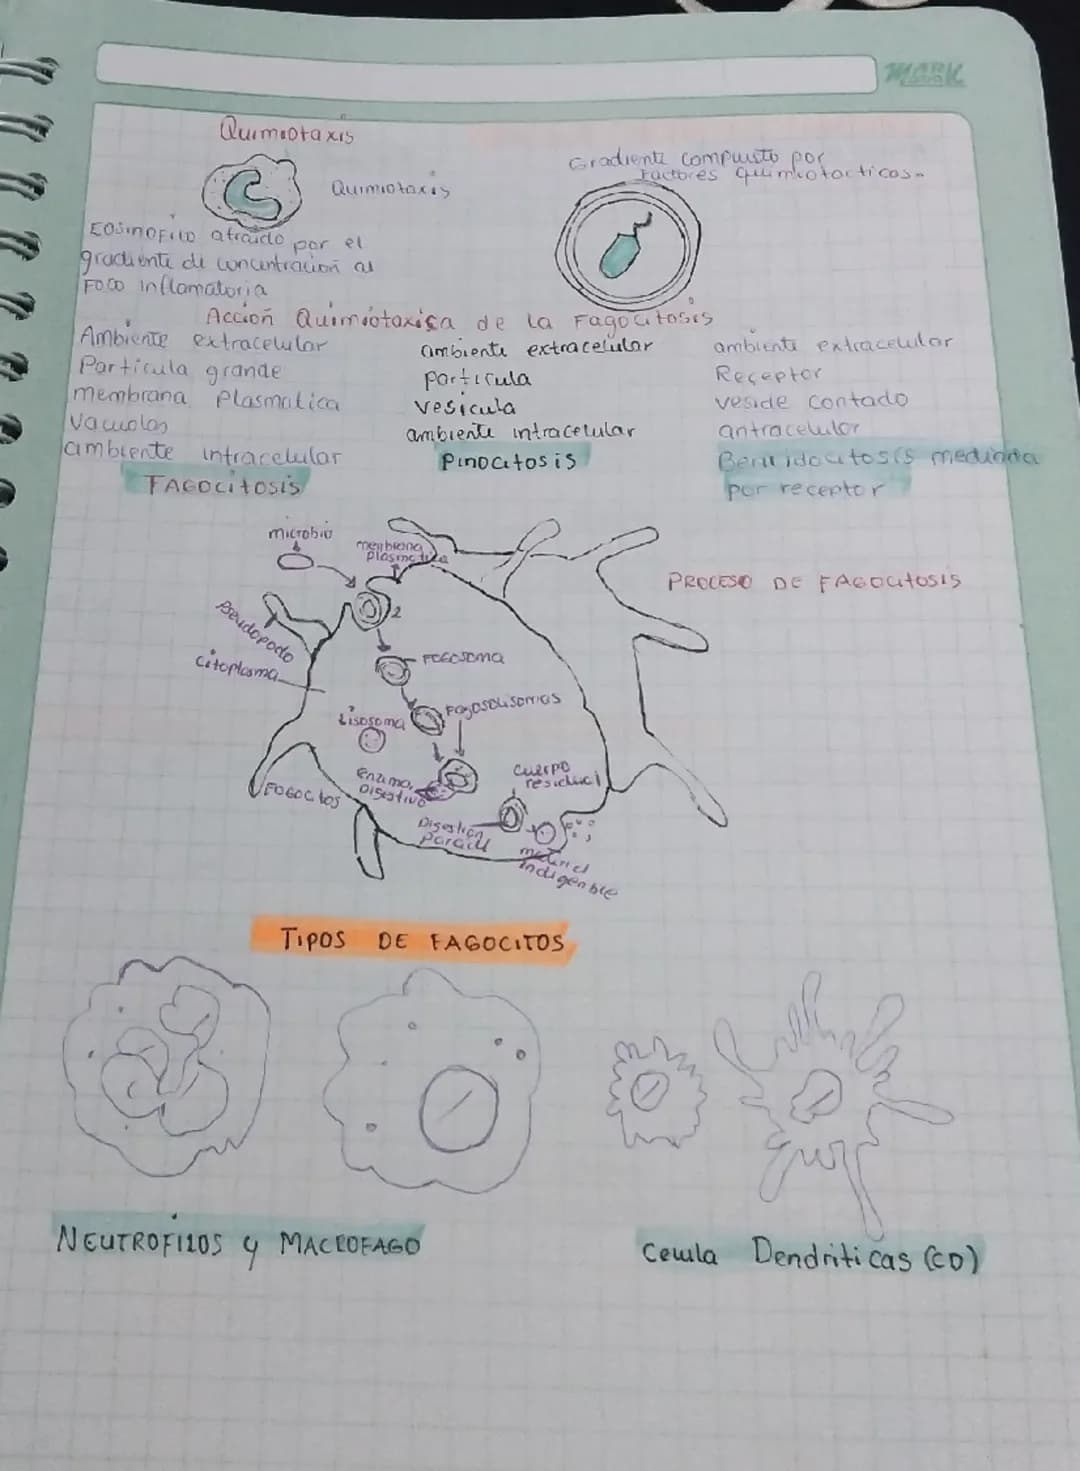 MARK
Quimiotaxis
Quimiotaxis
Gradiente compuesto por
Factores quimiotacticos.
EOSINOFILO atraido por el
gradiente de concentración al
FOCO inflamatoria
Acción Quimiotaxica de la Fagocitosis
Ambiente extracelular
Particula grande
membrana Plasmatica
Vacuolas
ambiente intracelular
FAGOCITOSIS
ambiente extracelular
particula
vesicula
ambiente intracelular
PINOCITOSIS
ambiente extracelular
Receptor
veside contado
antracelular
mediada
por receptor
microbio
membrana
plasmatica
PROCESO DE FAGOCITOSIS
2
Pseudopodo
Citoplasma
FOGOSOMA
Lisosoma
Fagosolisomas
enzima
Digestivo
FOGOCITOS
cuerpo
residual
Digestion
material
indigerible
TIPOS DE FAGOCITOS
NEUTROFILOS y MACROFAGO
Celula Dendriticas (CD)